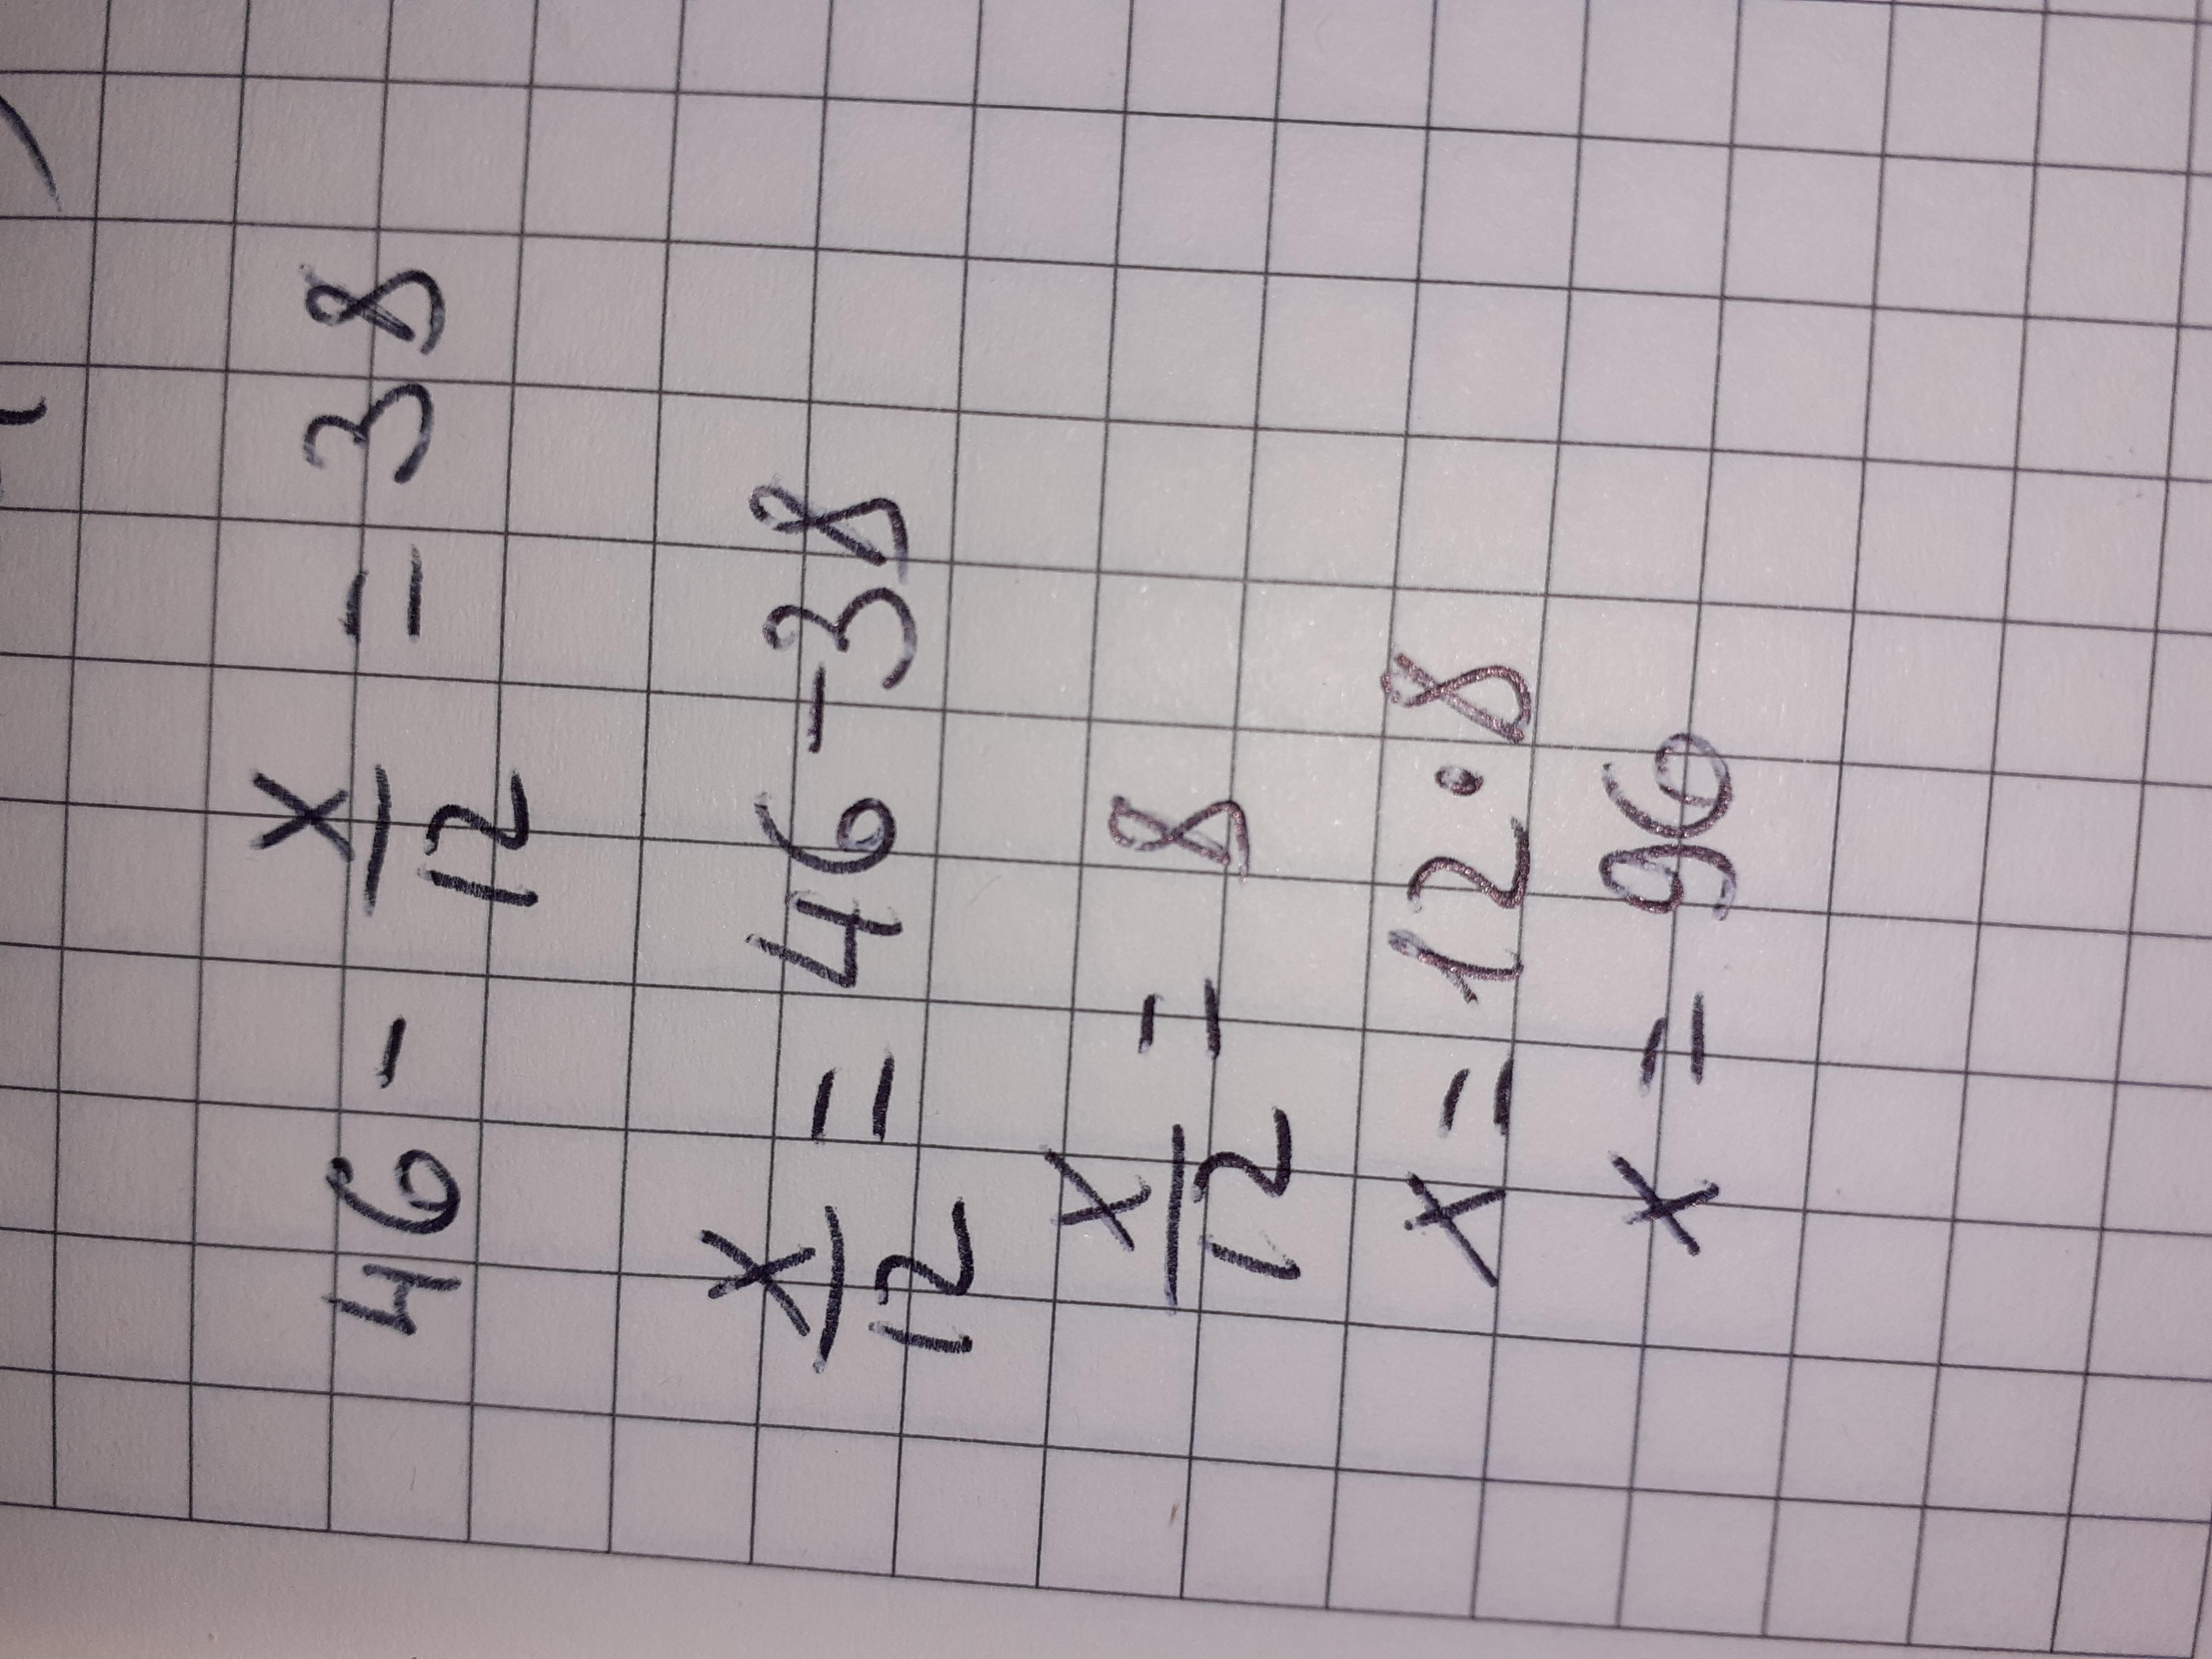 46 - x/12 = 38
x/12 = 46 - 38
x/12 = 8
x = 12 · 8
x = 96